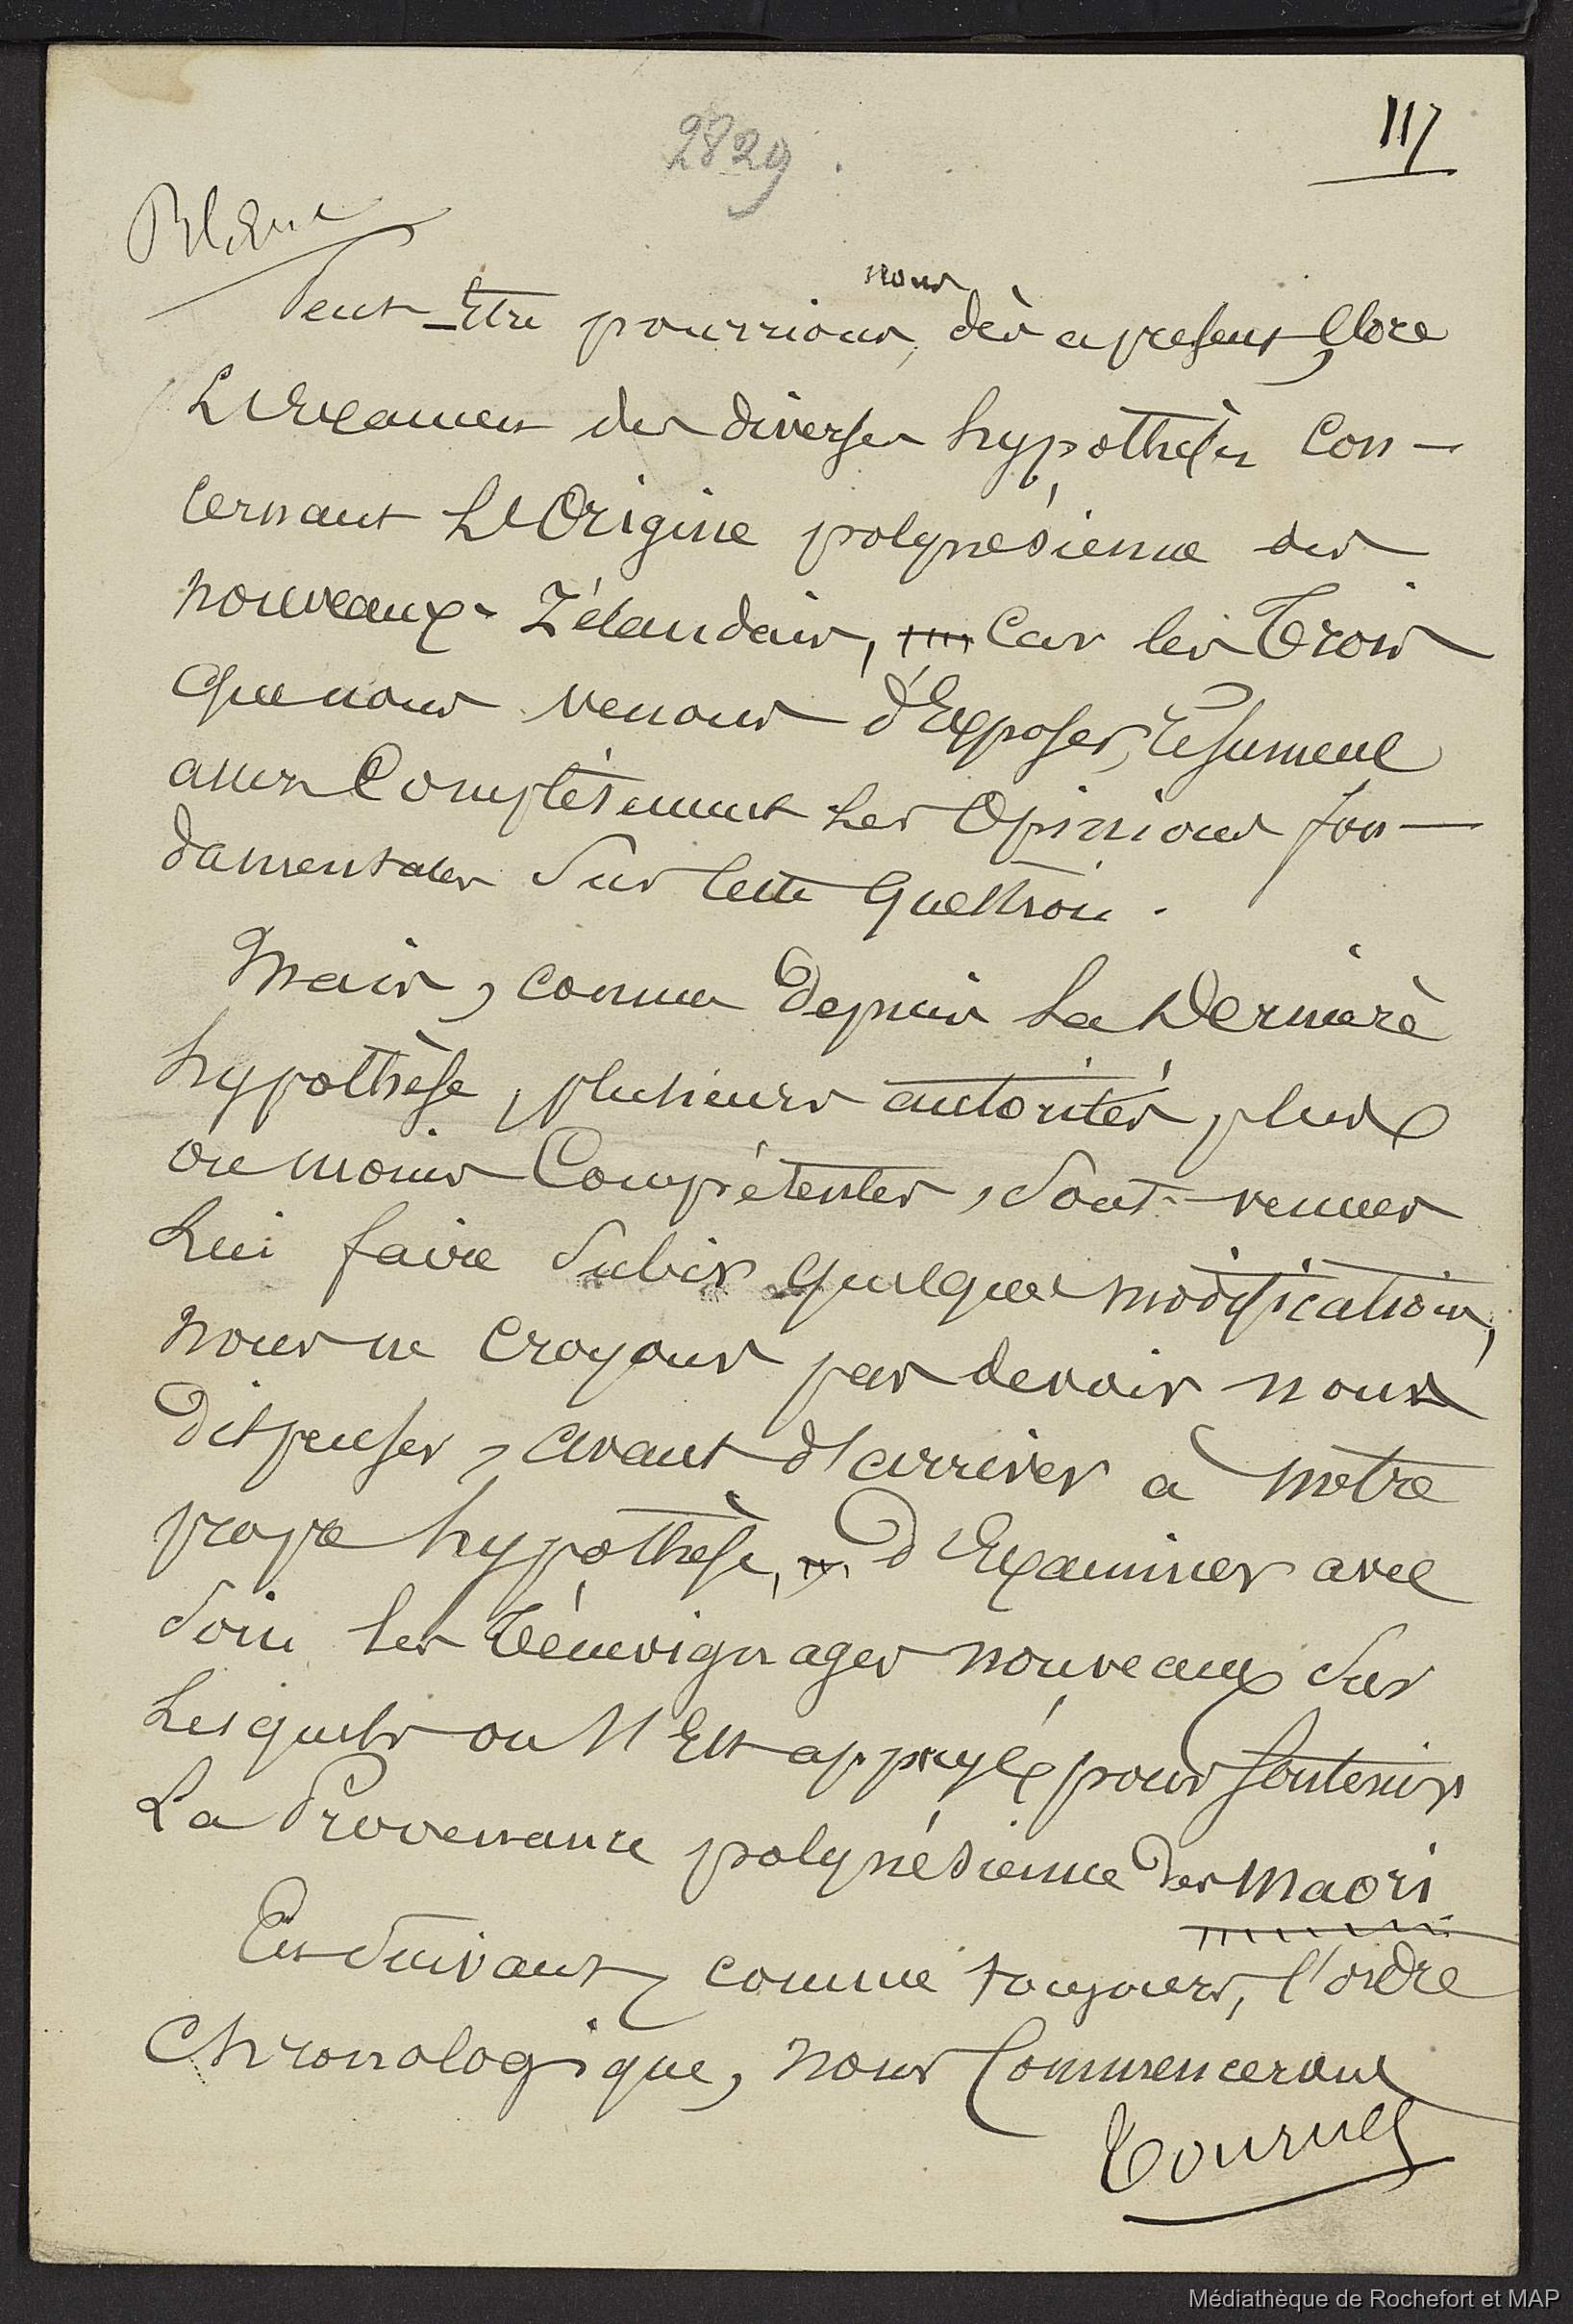 2829.
117
Blanc
Peut-Être pourrions nous, dès a present, Clore
L'Examen des diverses hypothèses Con-
cernant L'Origine polynésienne des
nouveaux-Zélandais, Car les Trois
que nous venons d'Exposer, résument
assez Complètement Les Opinions fon-
damentales Sur cette Question.
Mais, comme depuis La Dernière
hypothèse, plusieurs autorités, plus
ou moins Compétentes, Sont venues
Lui faire Subir quelques modifications,
nous ne Croyons pas devoir nous
dispenser, avant d'arriver à notre
propre hypothèse, d'Examiner avec
Soin les Témoignages nouveaux Sur
Lesquels on S'Est appuyé pour Soutenir
La Provenance polynésienne des Maori
En Suivant, comme toujours, l'ordre
Chronologique, nous Commencerons
Tournez
Médiathèque de Rochefort et MAP